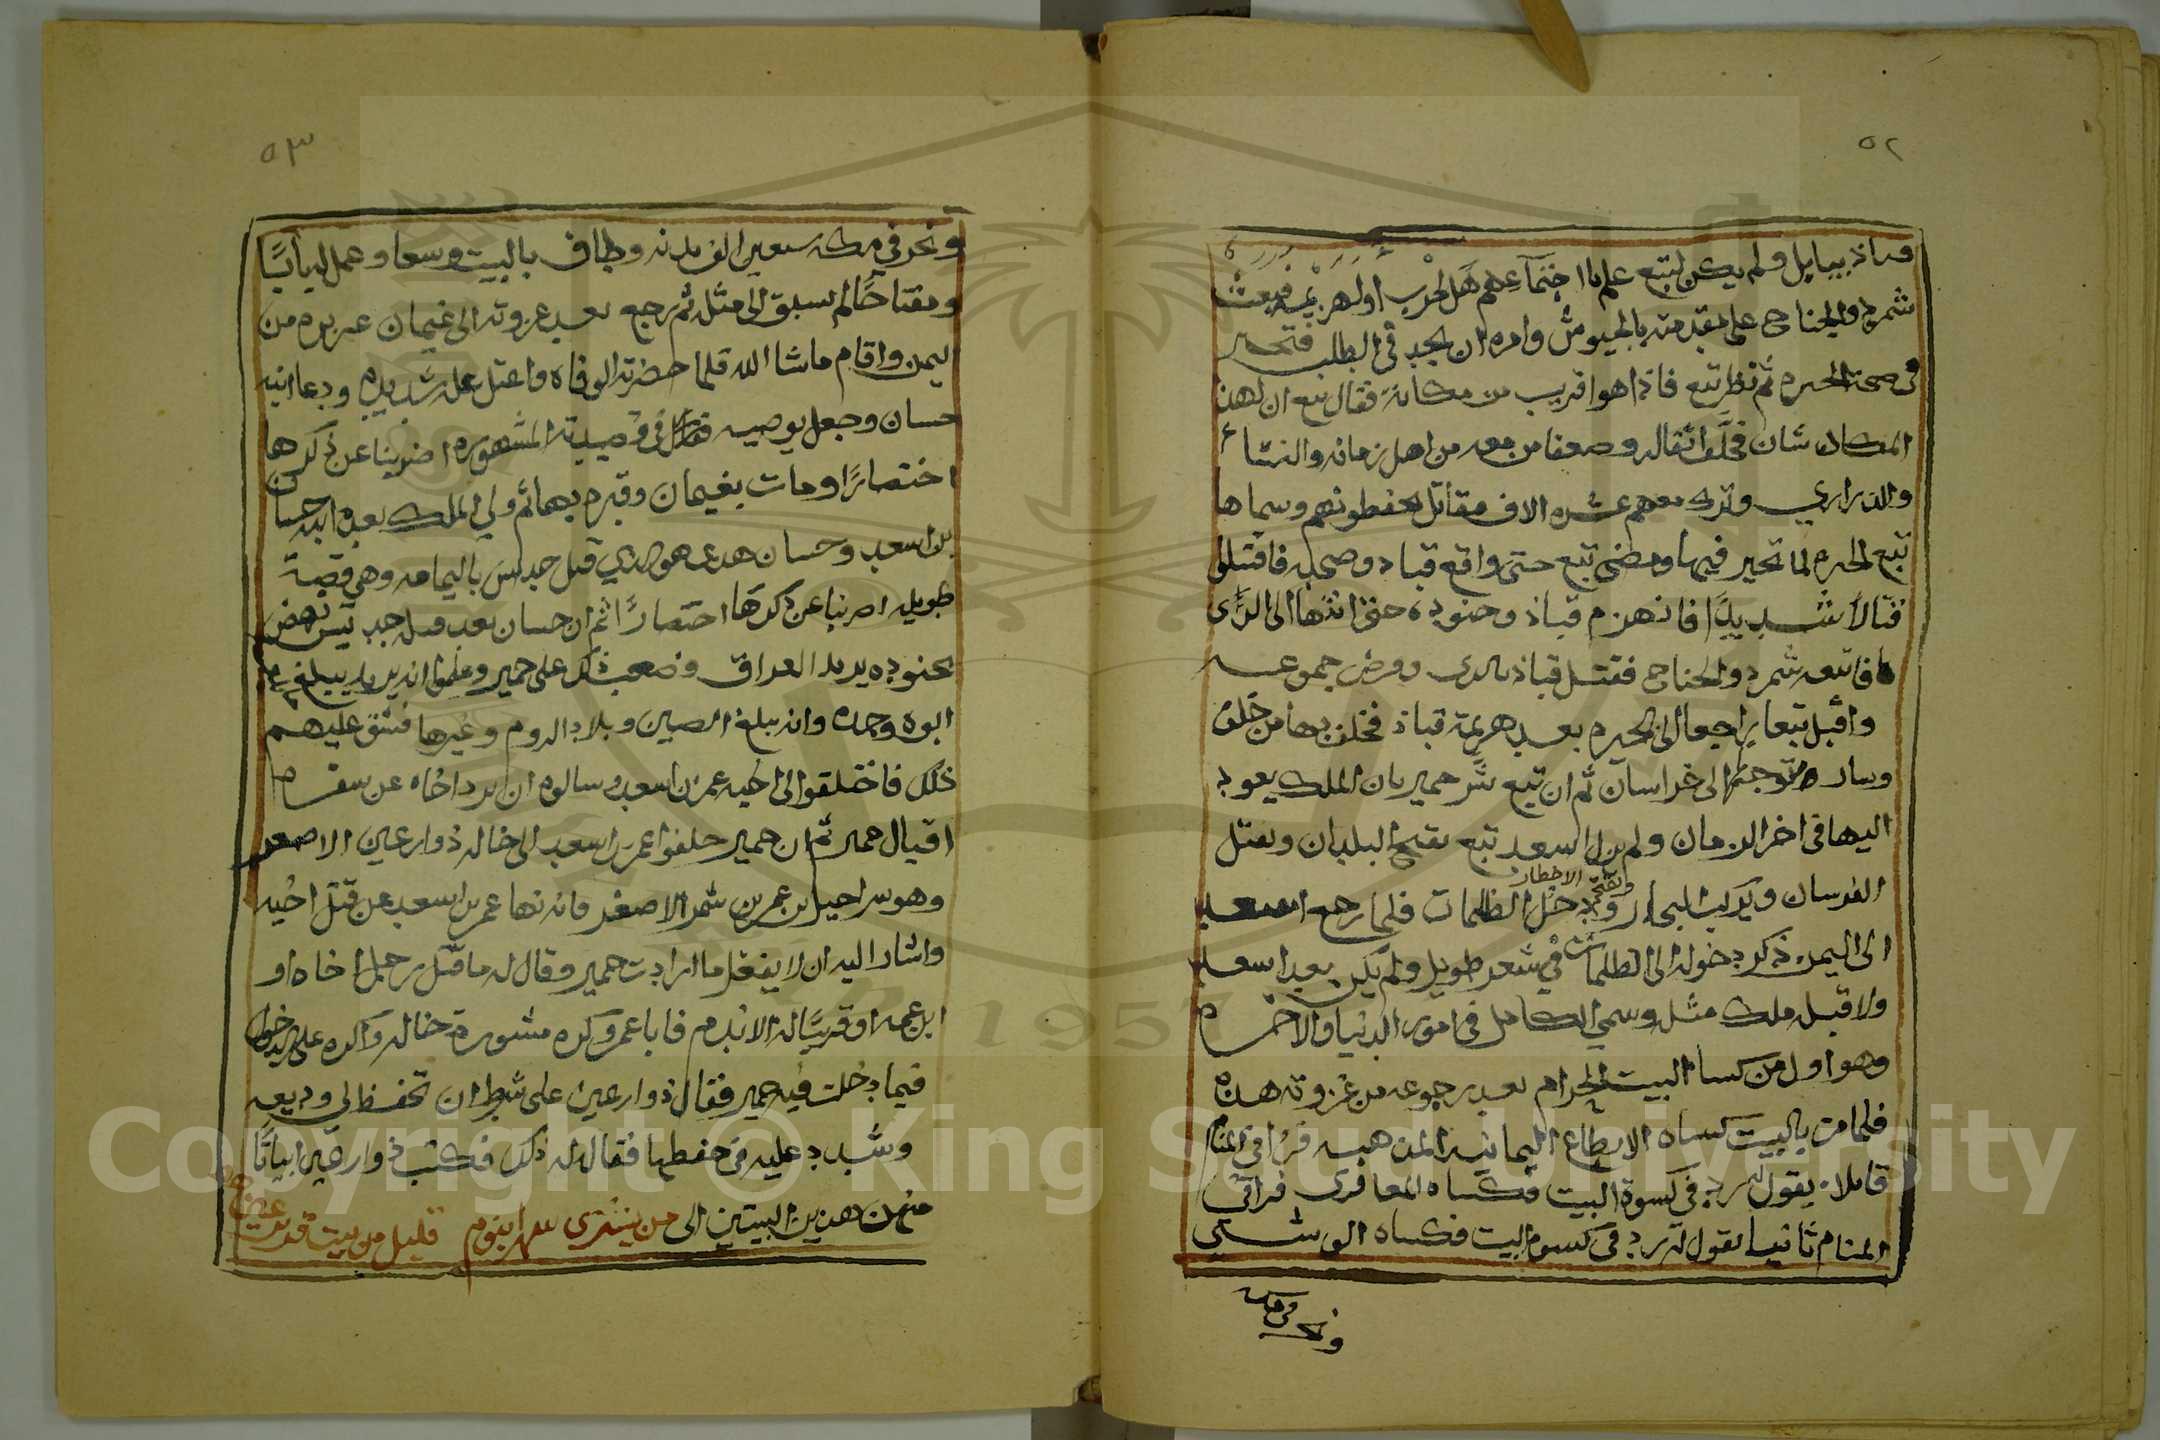 ٥٢
وقباذ ببابل ولم يكن لتبع علم بااجتماعهم هل لحرب اولهربه فبعث
شمر ذوالجناح على مقدمته بالجيوش وامره ان يجد في الطلب فتحير
في صحة الحيره ثم نظر تبع فاذا هوا قريب من مكانه فقال تبع ان لهذا
المكان شان فخلف اثقاله وضعفا من معه من اهل زمانه والنساء
والذراري وترك معهم عشره الاف مقاتل يحفظونهم وسماها
تبع الحيره لما تحير فيها ومضى تبع حتى واقع قباد وصحبه فاقتتلوا
قتالاً شديداً فانهزم قباذ وجنوده حتى انتها الى الرَّى
فاتبعه شمر ذوالجناح فقتل قباذ بالرى وفرض جموعه
واقبل تبعا راجعا الى الحيره بعد هزيمة قباذ فخلف بها من خلف
وسار متوجها الى خراسان ثم ان تبع بشر حمير بان الملك يعود
اليها فى اخر الزمان ولم يزل اسعد تبع يفتح البلدان ويقتل
الفرسان ويركب البحار ويفتح الاخطار ودخل الظلمات فلما رجع اسعد
الى اليمن ذكر دخوله الى الظلمات في شعر طويل ولم يكن بعد اسعد
ولا قبله ملك مثله وسمي الكامل في امور الدنيا والاخره
وهو اول من كسا البيت الحرام بعد رجوعه من غزوته هذه
فلما مر بالبيت كساه الانطاع اليمانيه المذهبه فرا في المنام
قايلا يقول له زد في كسوة البيت فكساه المعافرى فراى
المنام ثانيا يقول له زد في كسوة البيت فكساه الوشي
ونحر في مكه
٥٣
ونحر في مكه سبعين الف بدنه وطاف بالبيت وسعا وعمل له باباً
ومفتاحاً لم يسبق الى مثله ثم رجع بعد غزوته الى غيمان
اليمن واقام ماشا الله فلما حضرته الوفاه واعتل عله شديده ودعا ابنه
حسان وجعل يوصيه فقال في قصيدته المشهوره اضربنا عن ذكرها
اختصارًا ومات بغيمان وقبره بها ثم ولي الملك بعده ابنه حسان
بن اسعد وحسان هذا هو الذي قتل جديس باليمامه وهي قصة
طويله اضربنا عن ذكرها اختصارًا ثم ان حسان بعد قتله جديس نهض
بجنوده يريد العراق وصعب ذلك على حمير وعلموا انه يريد يبلغ
ابوه وجده وانه يبلغ الصين وبلاد الروم وغيرها فشق عليهم
ذلك فانطلقوا الى اخيه عمر بن اسعد وسالوه ان يرد اخاه عن سفره
اقيال حمير ثم ان حمير خلفوا عمر بن اسعد الى خاله ذوا رعين الاصغر
وهو شراحيل بن عمر بن شمر الاصغر فانه نها عمر بن اسعد عن قتل اخيه
واشار اليه ان لا يفعل ما ارادت حمير وقال له ما قتل رجل اخاه او
ابن عمه او قريباً له الا ندم فابا عمرو كره مشورة خاله واكره على الدخول
فيما دخلت فيه حمير فقال ذوا رعين على شرط ان تحفظ لي وديعه
وشدد عليه في حفظها فقال له ذلك فكتب ذوا رعين ابياتًا
منهن هذين البيتين الى من يشترى سهرا بنوم قليل من يبت قرير عين